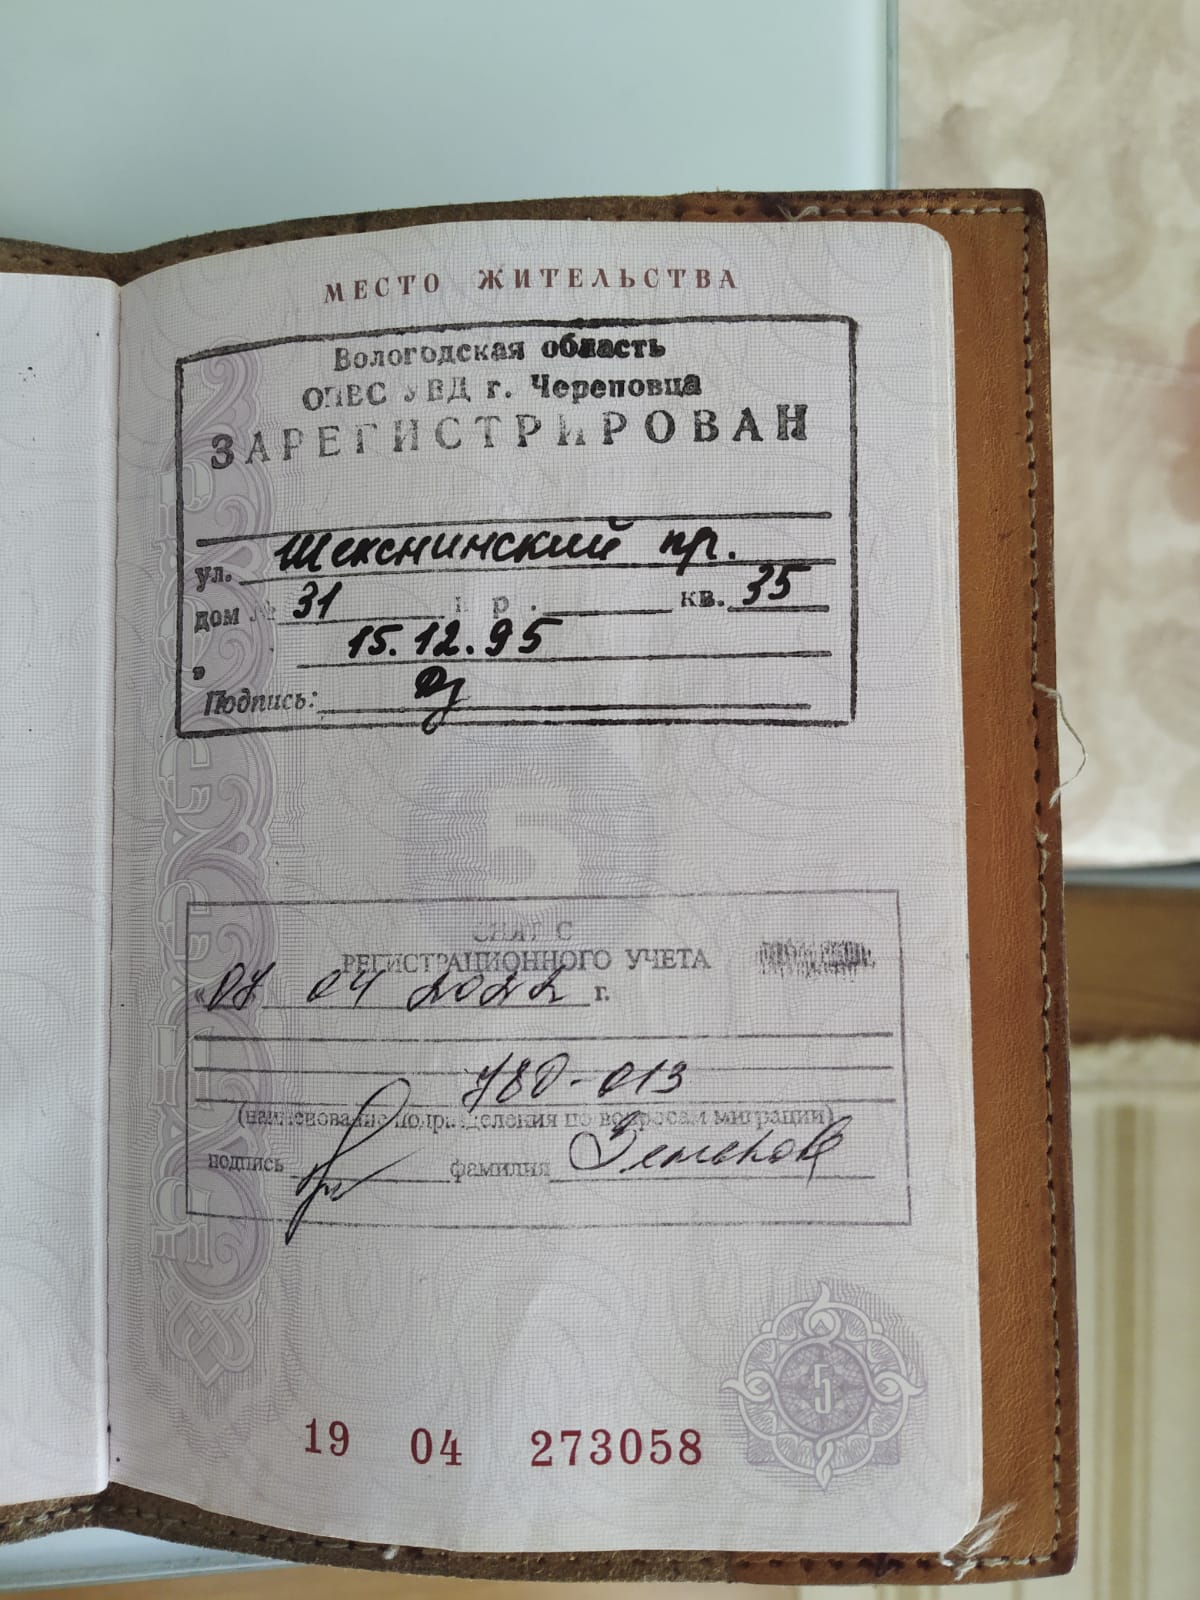 МЕСТО ЖИТЕЛЬСТВА
Вологодская область
ОПВС УВД г. Череповца
ЗАРЕГИСТРИРОВАН
ул. Шекснинский пр.
дом № 31 кор. кв. 35
15.12.95
Подпись:
5
СНЯТ С
РЕГИСТРАЦИОННОГО УЧЕТА
«07 04 2022 г.
780-013
(наименование подразделения по вопросам миграции)
подпись фамилия
5
19 04 273058